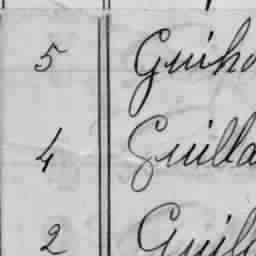 5 Guiho
4 Guilla
2 Guill